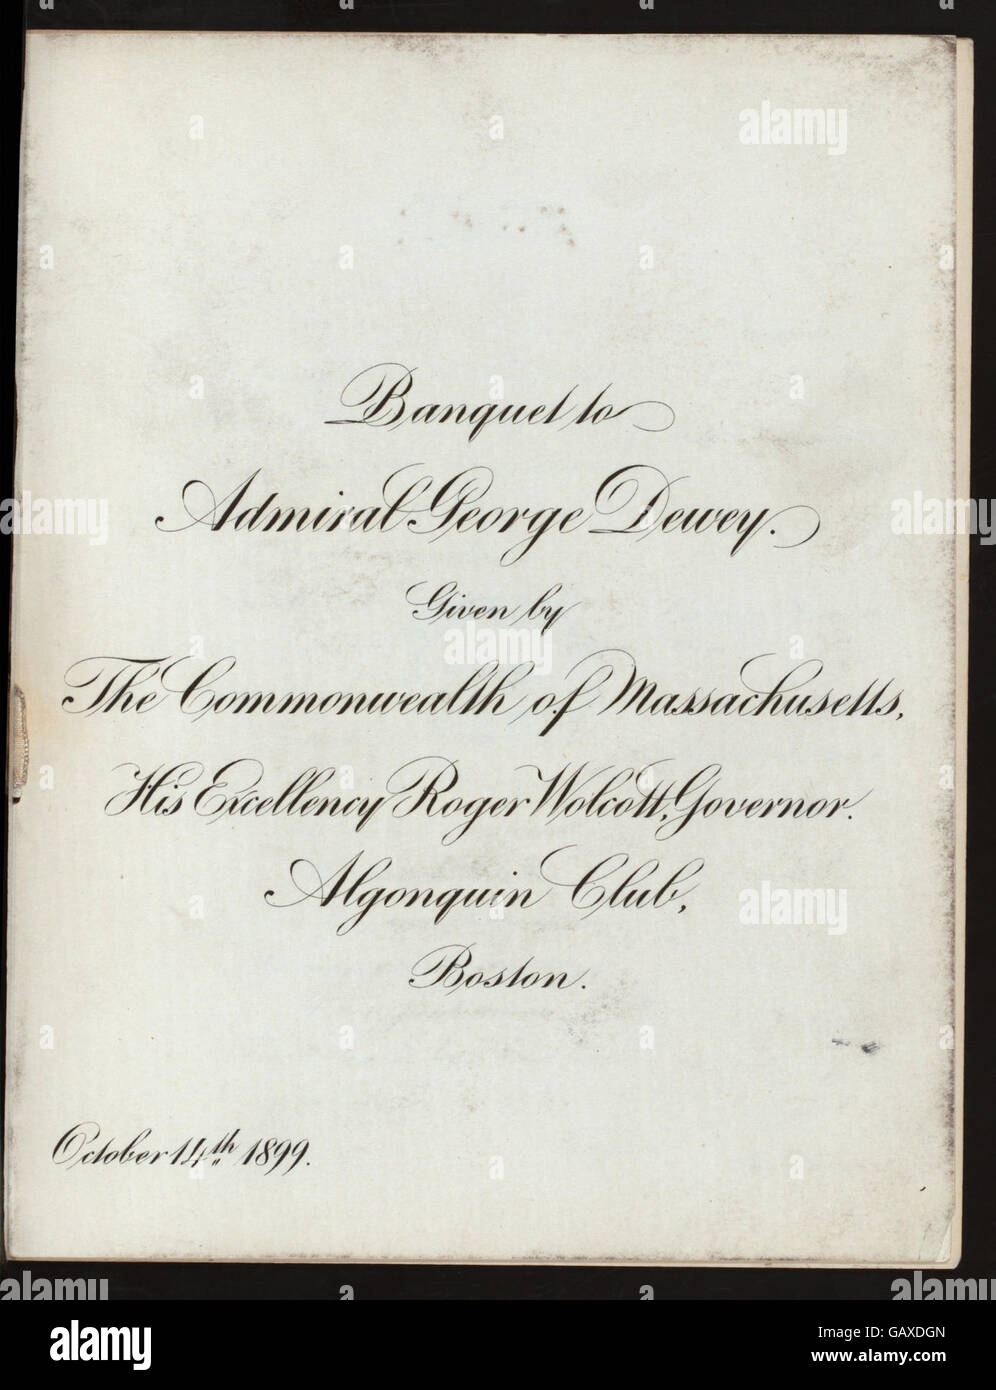 Banquet to
Admiral George Dewey.
Given by
The Commonwealth of Massachusetts,
His Excellency Roger Wolcott, Governor.
Algonquin Club,
Boston.
October 14th 1899.
alamy
Image ID: GAXDGN
www.alamy.com